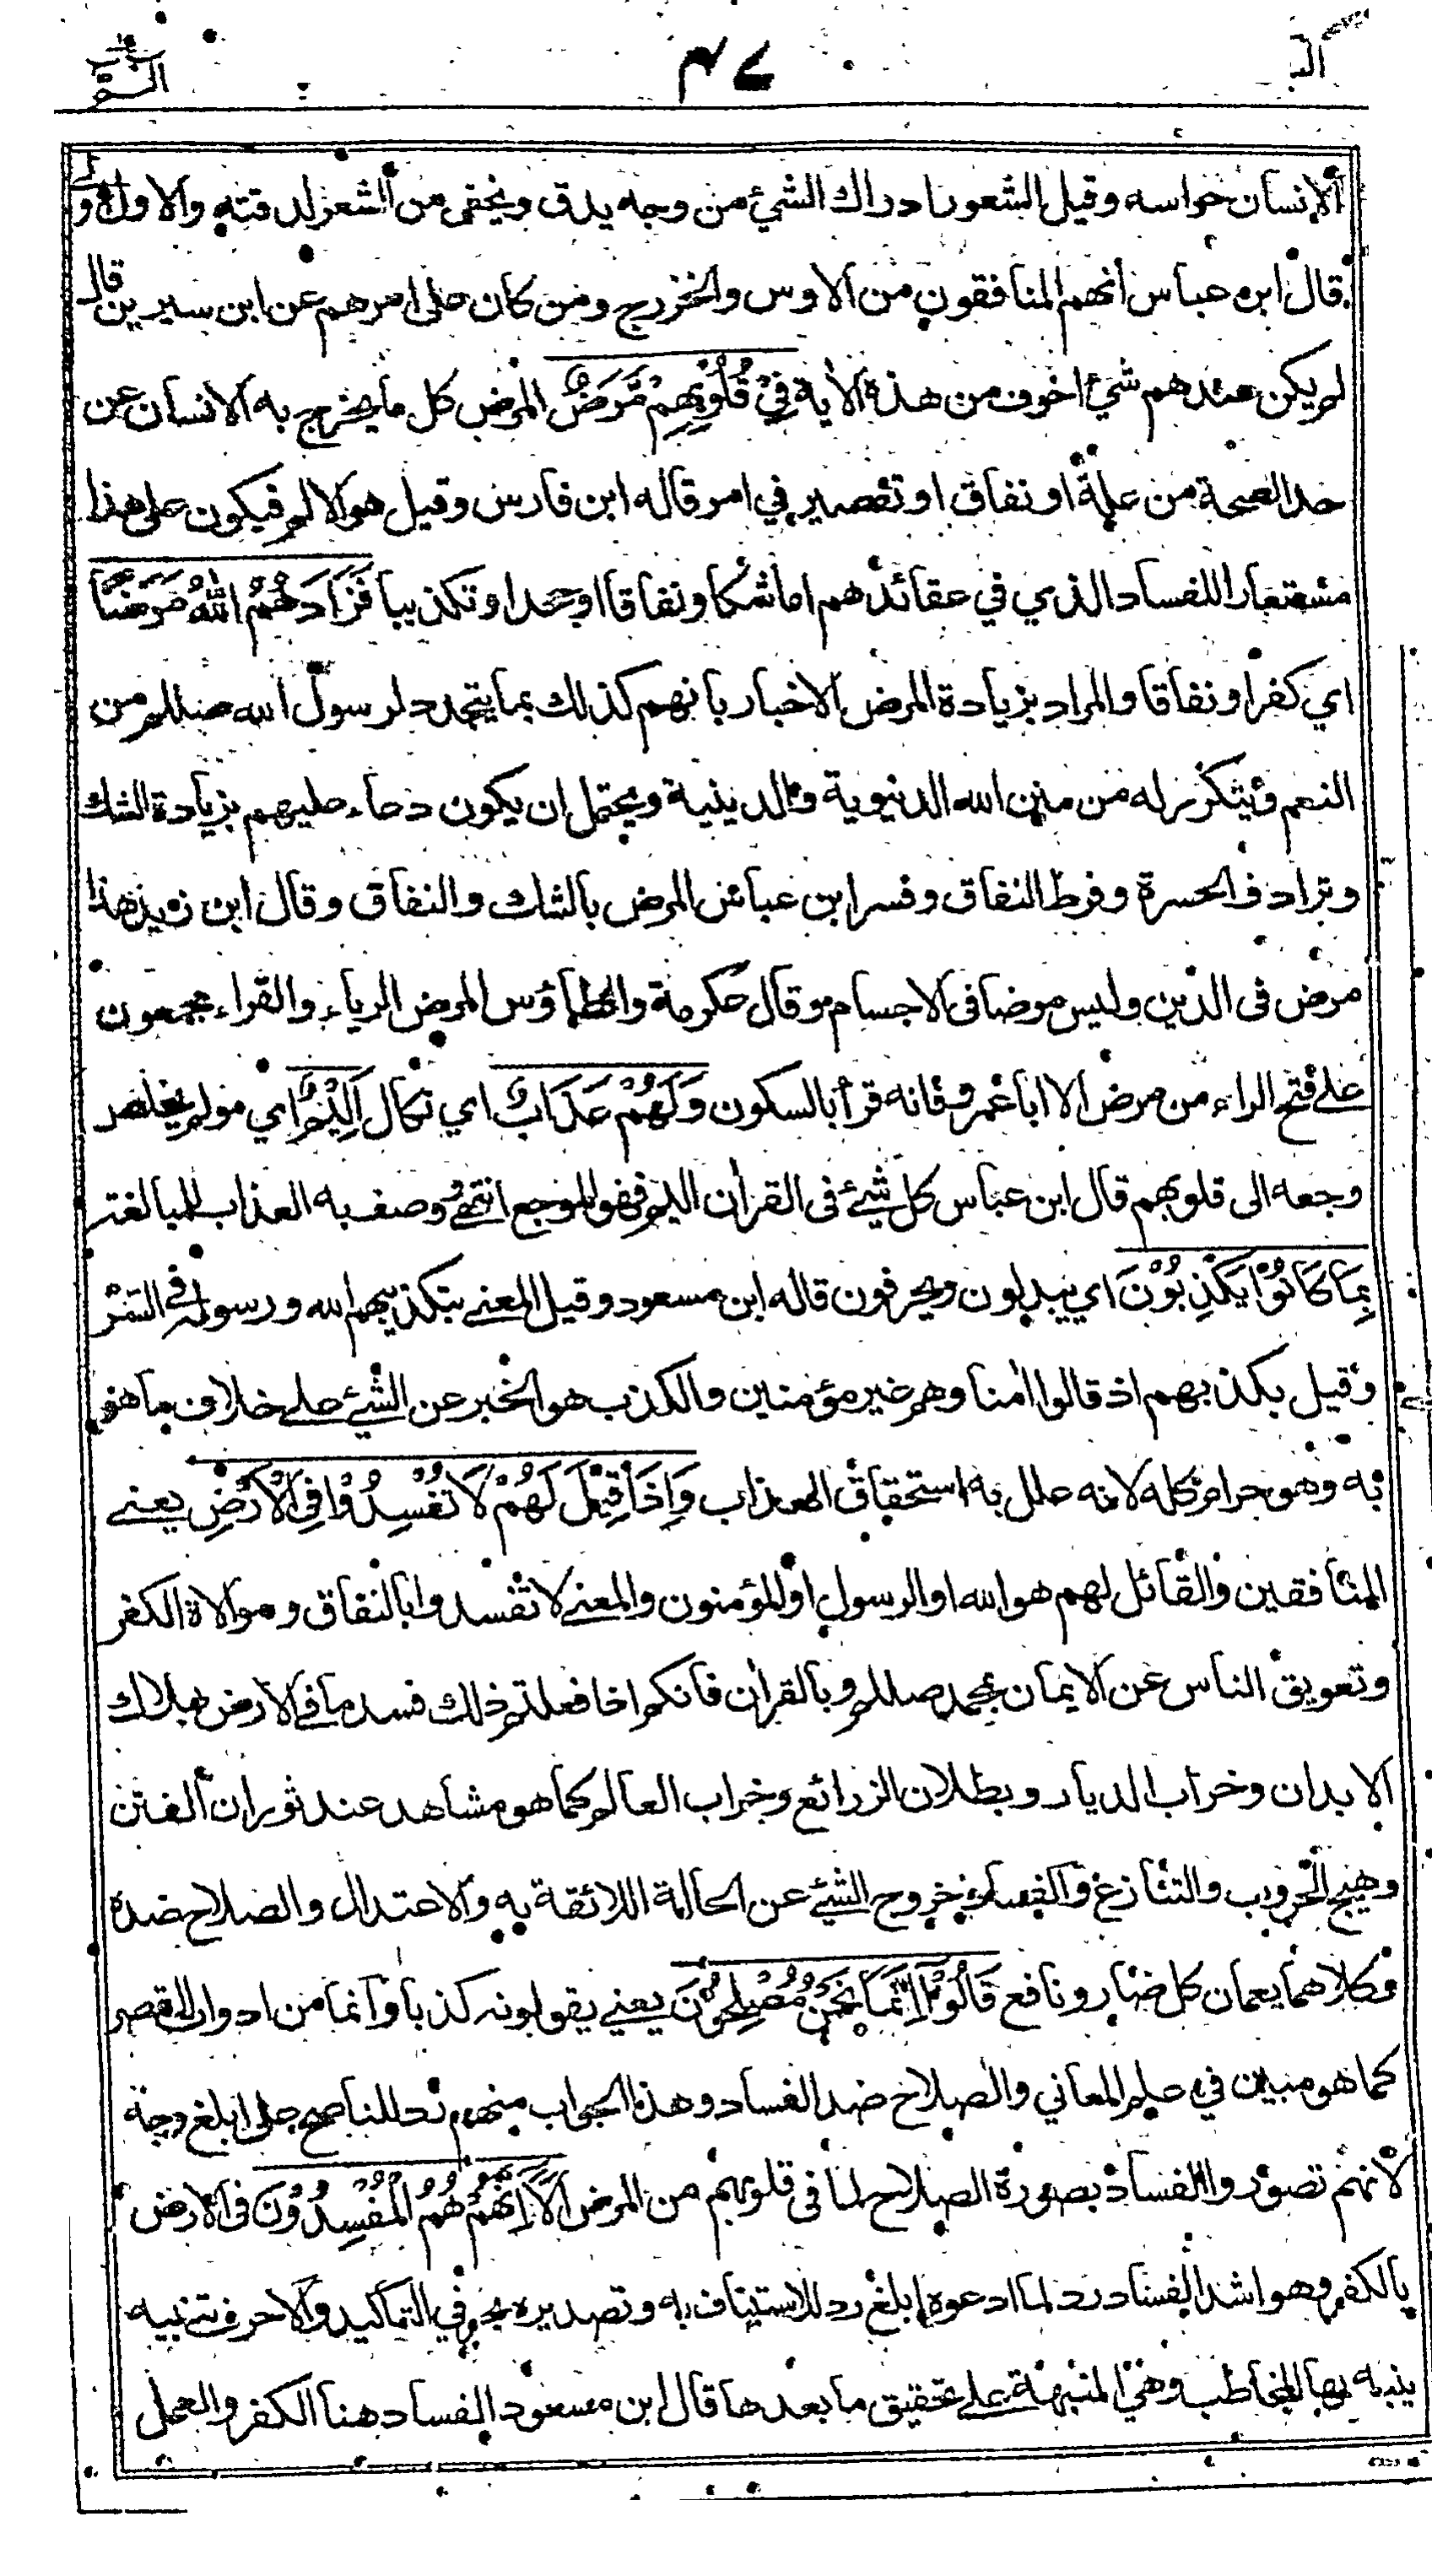 الم ٤٧ البقرة
الإنسان حواسه وقيل الشعور ادراك الشيء من وجه يدق ويخفى من الشعر لدقته والاول اولى
قال ابن عباس أنهم المنافقون من الاوس والخزرج ومن كان على امرهم عن ابن سيرين قال
لم يكن عندهم شيء اخوف من هذه الأية فِيْ قُلُوْبِهِمْ مَّرَضٌ المرض كل ما يخرج به الانسان عن
حد الصحة من علة او نفاق او تقصير في امر قاله ابن فارس وقيل هو الالم فيكون على هذا
مستعارا للفساد الذي في عقائدهم اما شكا ونفاقا او جحدا وتكذيبا فَزَادَهُمُ اللّٰهُ مَرَضًا
اي كفرا ونفاقا والمراد بزيادة المرض الاخبار بانهم كذلك بما يتجدد لرسول الله صللم من
النعم ويتكرر له من منن الله الدنيوية والدينية ويحتمل ان يكون دعاء عليهم بزيادة الشك
وترادف الحسرة وفرط النفاق وفسر ابن عباس المرض بالشك والنفاق وقال ابن زيد هذا
مرض فى الدين وليس مرضا فى الاجسام وقال عكرمة والطاؤس المرض الرياء والقراء مجمعون
على فتح الراء من مرض الا ابا عمرو فانه قرأ بالسكون وَلَهُمْ عَذَابٌ اي نكال اَلِيْمٌ اي مولم يخلص
وجعه الى قلوبهم قال ابن عباس كل شيئ فى القرأن اليم فهو الموجع انتهى وصف به العذاب للمبالغة
بِمَا كَانُوْا يَكْذِبُوْنَ اي يبدلون ويحرفون قاله ابن مسعود وقيل المعنى بتكذيبهم الله ورسوله في السر
وقيل بكذبهم اذ قالوا أمنا وهم غير مؤمنين والكذب هو الخبر عن الشيئ على خلاف ما هو
به وهو حرام كله لانه علل به استحقاق العذاب وَاِذَا قِيْلَ لَهُمْ لَا تُفْسِدُوْا فِى الْاَرْضِ يعني
المنافقين والقائل لهم هو الله او الرسول او المؤمنون والمعنى لا تفسدوا بالنفاق وموالاة الكفر
وتعويق الناس عن الايمان بمحمد صللم وبالقرأن فانكم اذا فعلتم ذلك فسد ما في الارض بهلاك
الابدان وخراب الديار وبطلان الزرائع وخراب العالم كما هو مشاهد عند ثوران الفتن
وهيج الحروب والتنازع والفساد خروج الشيئ عن الحالة اللائقة به والاعتدال والصلاح ضده
وكلاهما يعمان كل ضار ونافع قَالُوْٓا اِنَّمَا نَحْنُ مُصْلِحُوْنَ يعني يقولونه كذبا وانما من ادوات القصر
كما هو مبين في علم المعاني والصلاح ضد الفساد وهذا الجواب منهم رد للناصح على ابلغ وجه
لانهم تصوروا الفساد بصورة الصلاح لما فى قلوبهم من المرض اَلَآ اِنَّهُمْ هُمُ الْمُفْسِدُوْنَ فى الارض
بالكفر وهو اشد الفساد رد لما ادعوه ابلغ رد للاستيناف به وتصديره بحرفي التاكيد والا حرف تنبيه
ينبه بها المخاطب وهي المنبهة على تحقيق ما بعدها قال ابن مسعود الفساد هنا الكفر والعمل